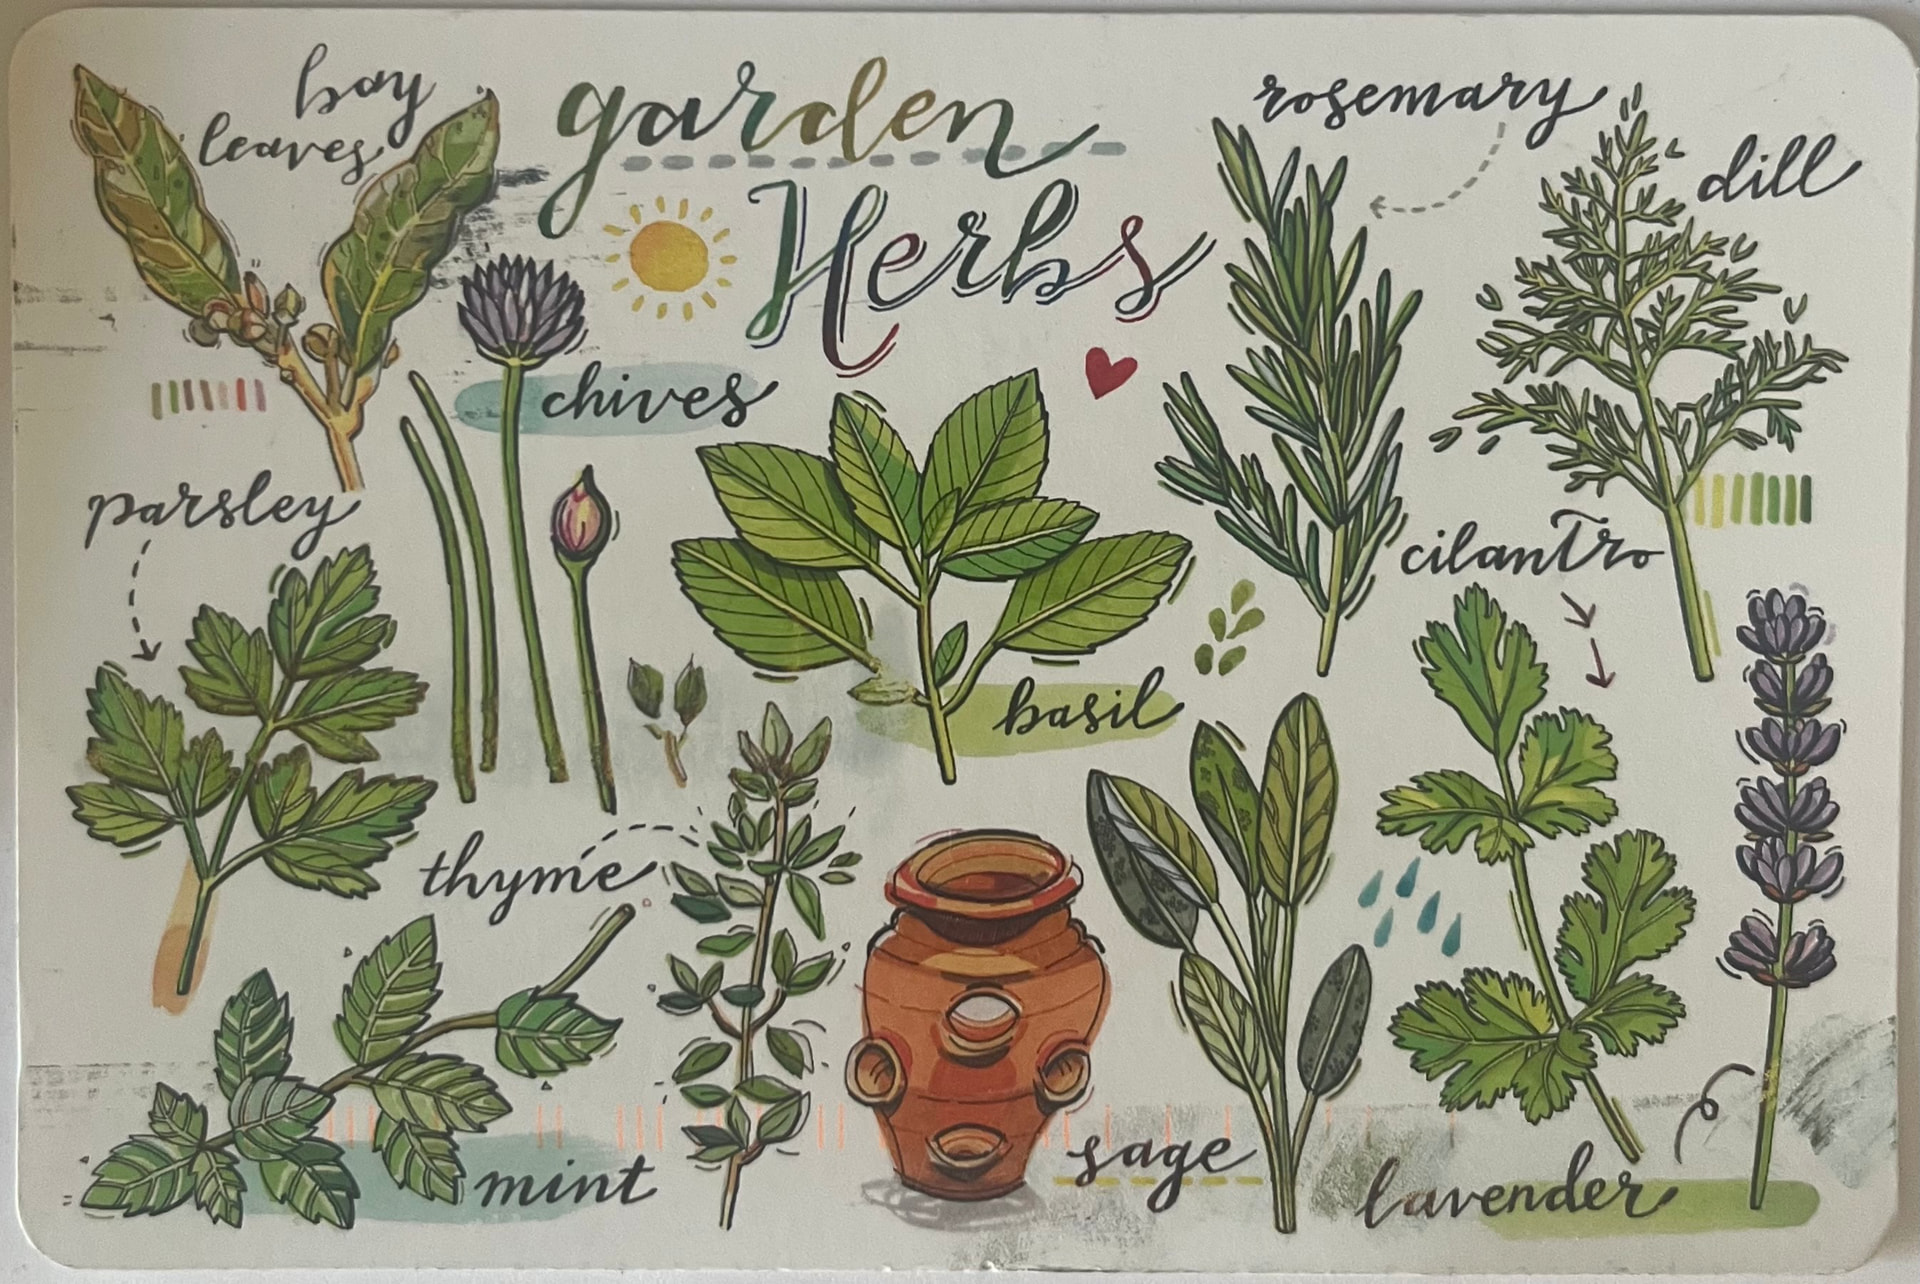 bay
leaves
garden
Herbs
rosemary
dill
chives
parsley
cilantro
basil
thyme
mint
sage
lavender